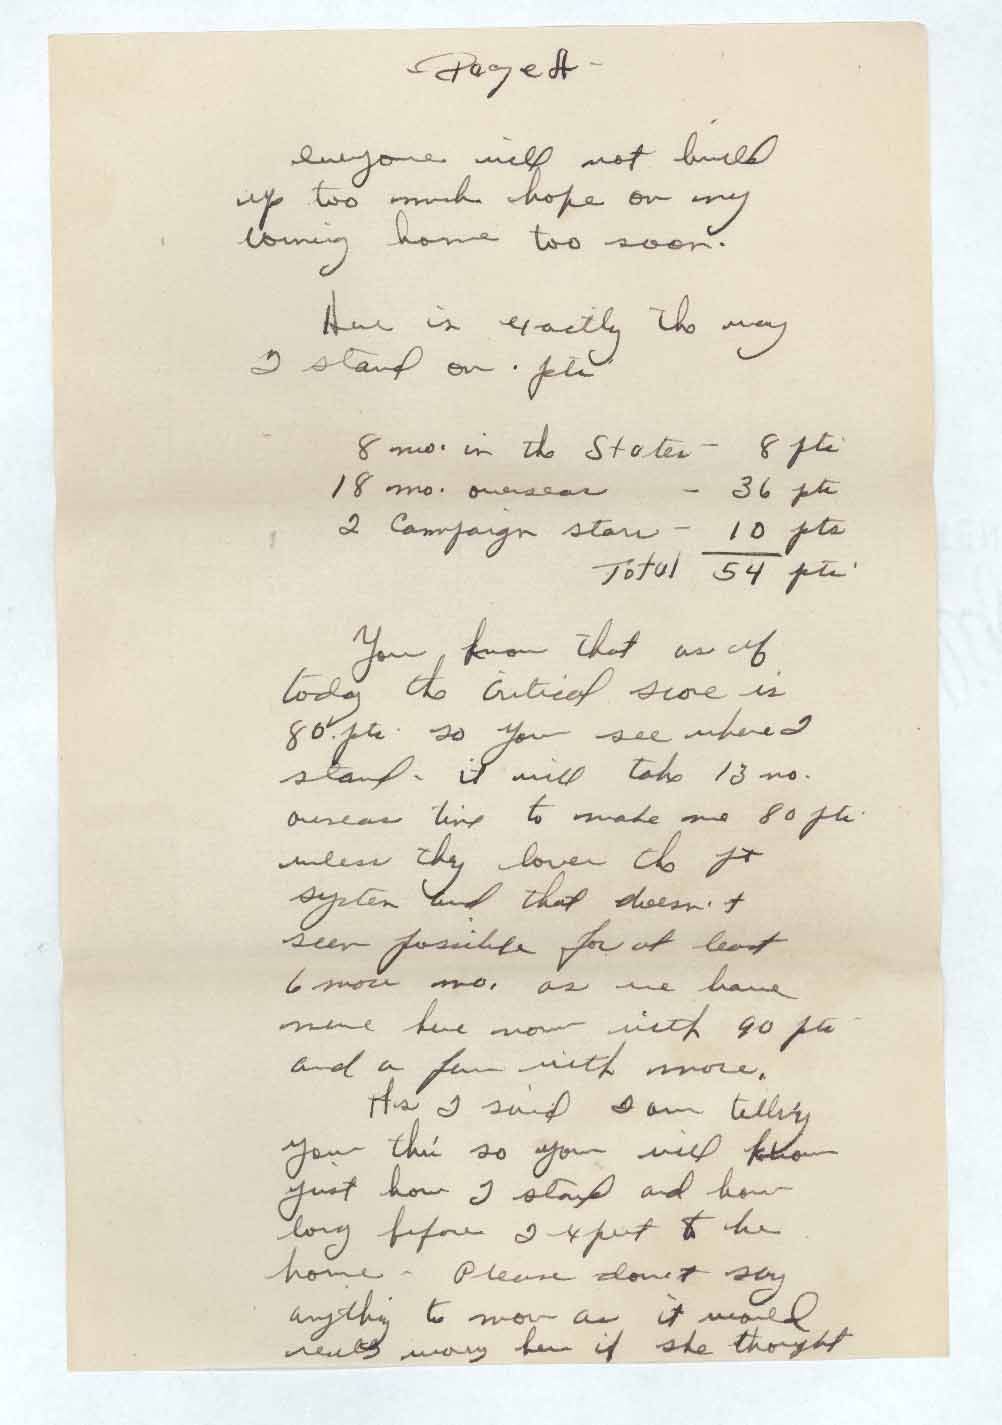 Page 4
everyone will not build
up too much hope on my
coming home too soon.
Here is exactly the way
I stand on pts
8 mo. in the States - 8 pts
18 mo. overseas - 36 pts
2 Campaign stars - 10 pts
Total 54 pts
You know that as of
today the critical score is
80 pts. so you see where I
stand - it will take 13 mo.
overseas time to make me 80 pts
unless they lower the pt
system and that doesn't
seem possible for at least
6 more mo. as we have
men here now with 90 pts
and a few with more.
As I said I am telling
you this so you will know
just how I stand and how
long before I expect to be
home - Please don't say
anything to mom as it would
really worry her if she thought